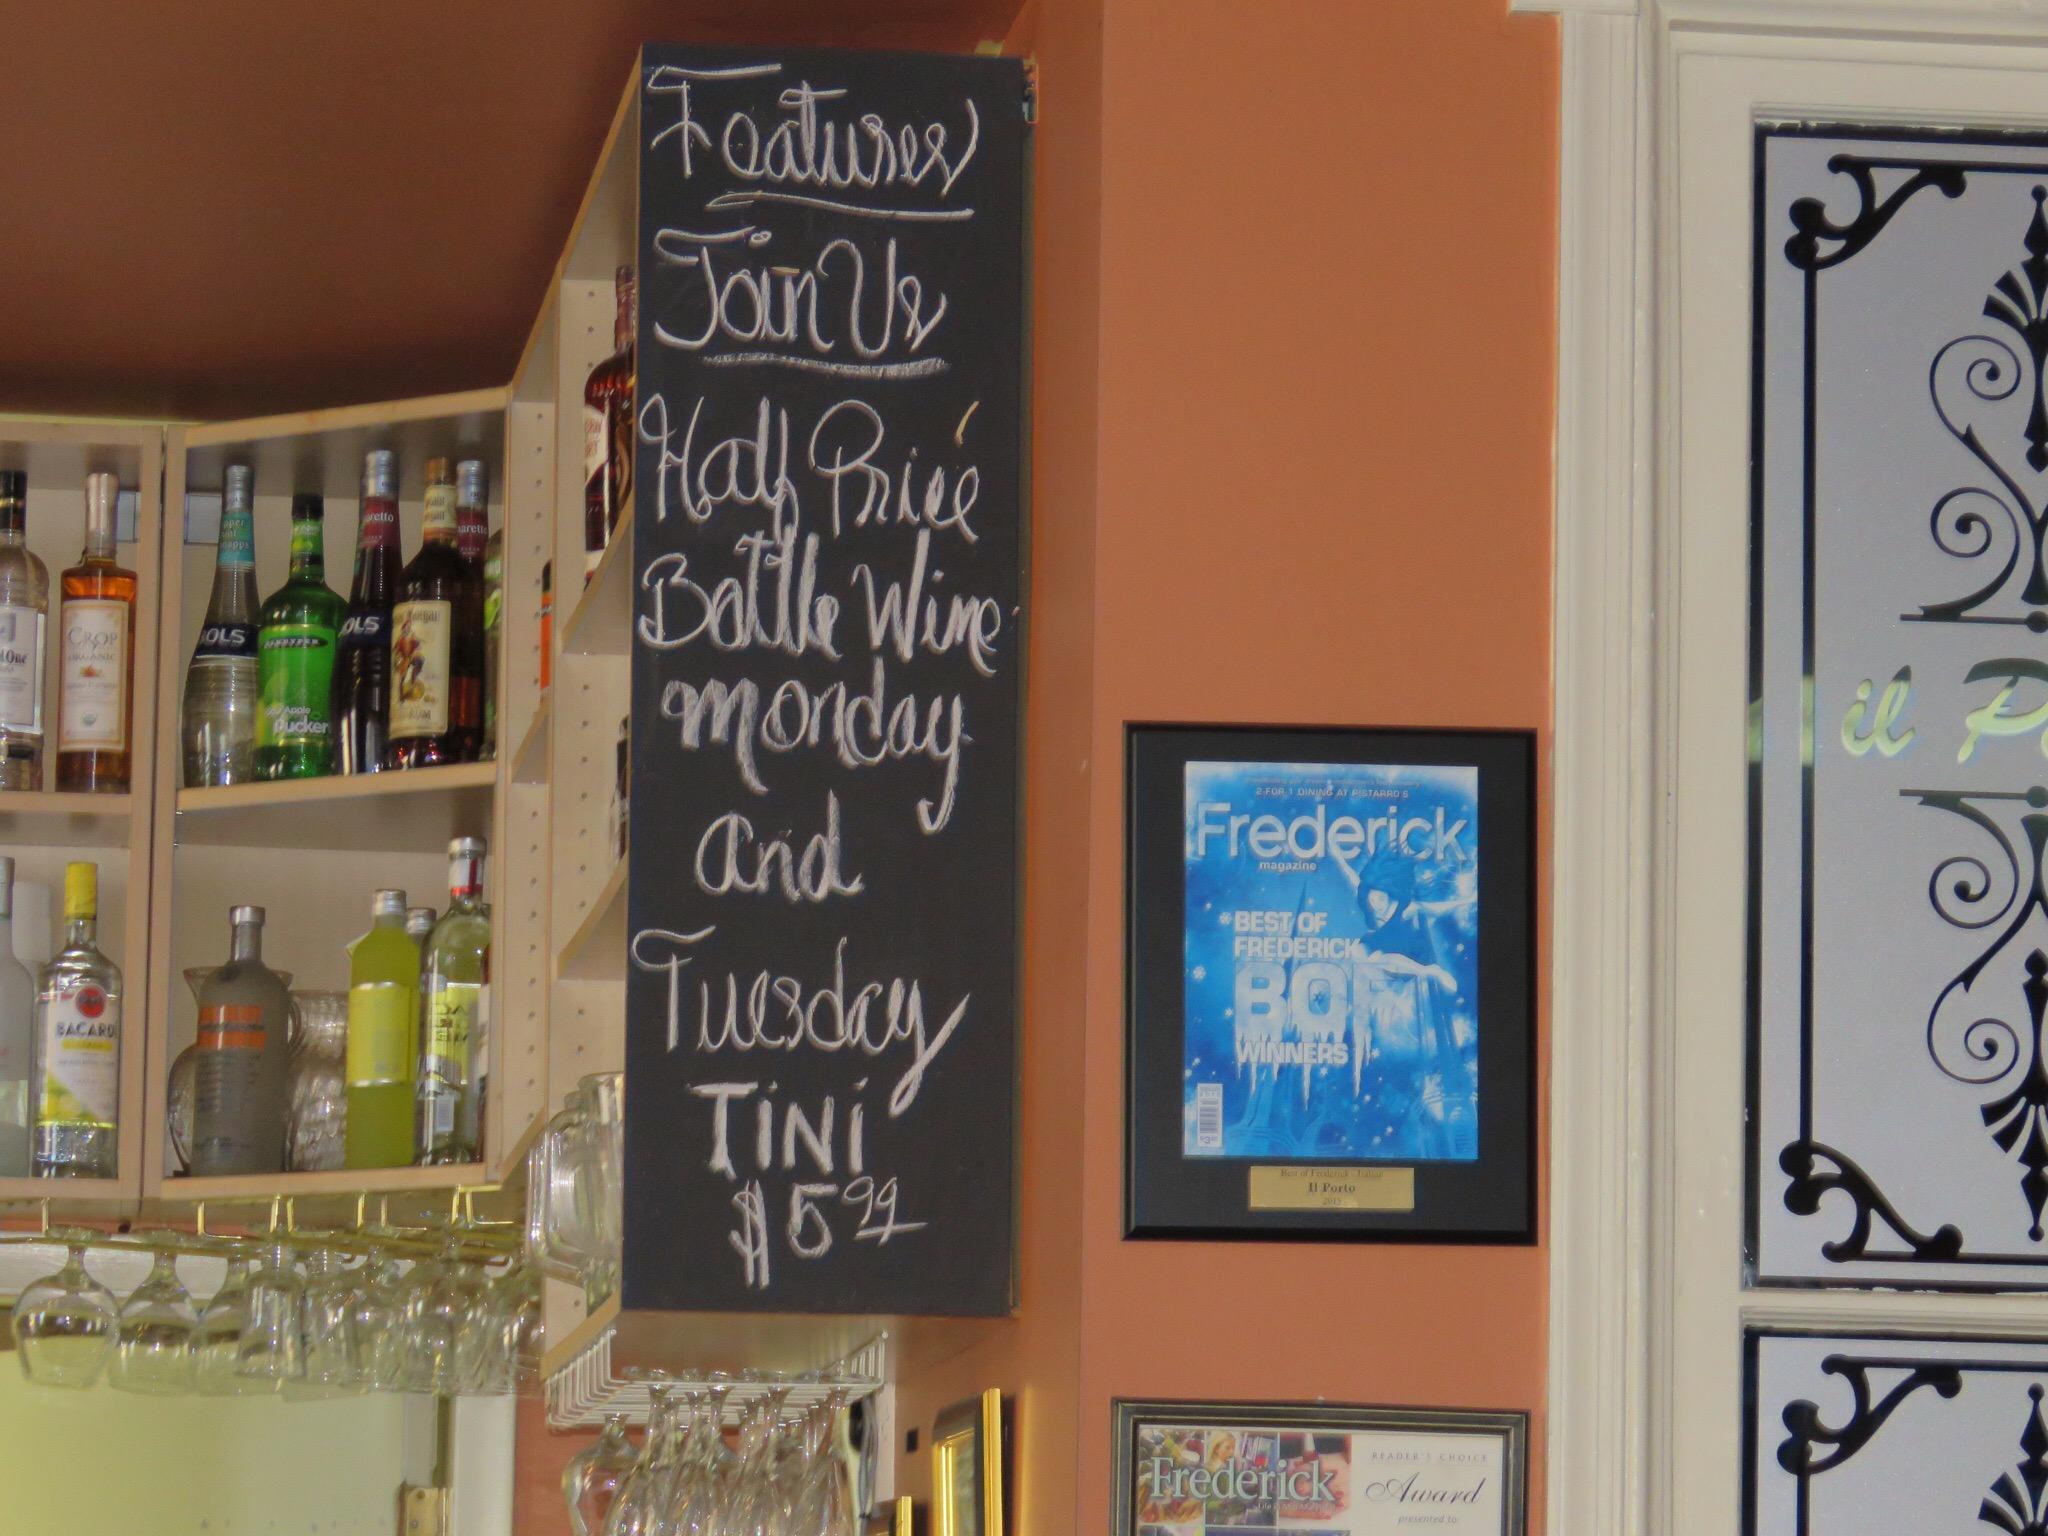 Features
Join Us
Half Price
Bottle Wine
Monday
and
Tuesday
TiNi
$5.99
2-FOR-1 DINING AT PISTARRO'S
Frederick
magazine
BEST OF
FREDERICK
BOF
WINNERS
$3.95
Best of Frederick - Italian
Il Porto
Frederick
READER'S CHOICE
Award
presented to:
il P
BOLS
Apple
Pucker
OLS
RUM
CROP
ORGANIC
One
BACARDI